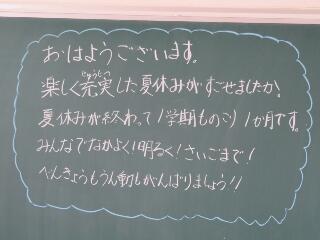 おはようございます。
楽しく充実した夏休みがすごせましたか？
じゅうじつ
夏休みが終わって1学期ものこり1か月です。
みんなでなかよく！明るく！さいごまで！
べんきょうもうん動もがんばりましょう!!